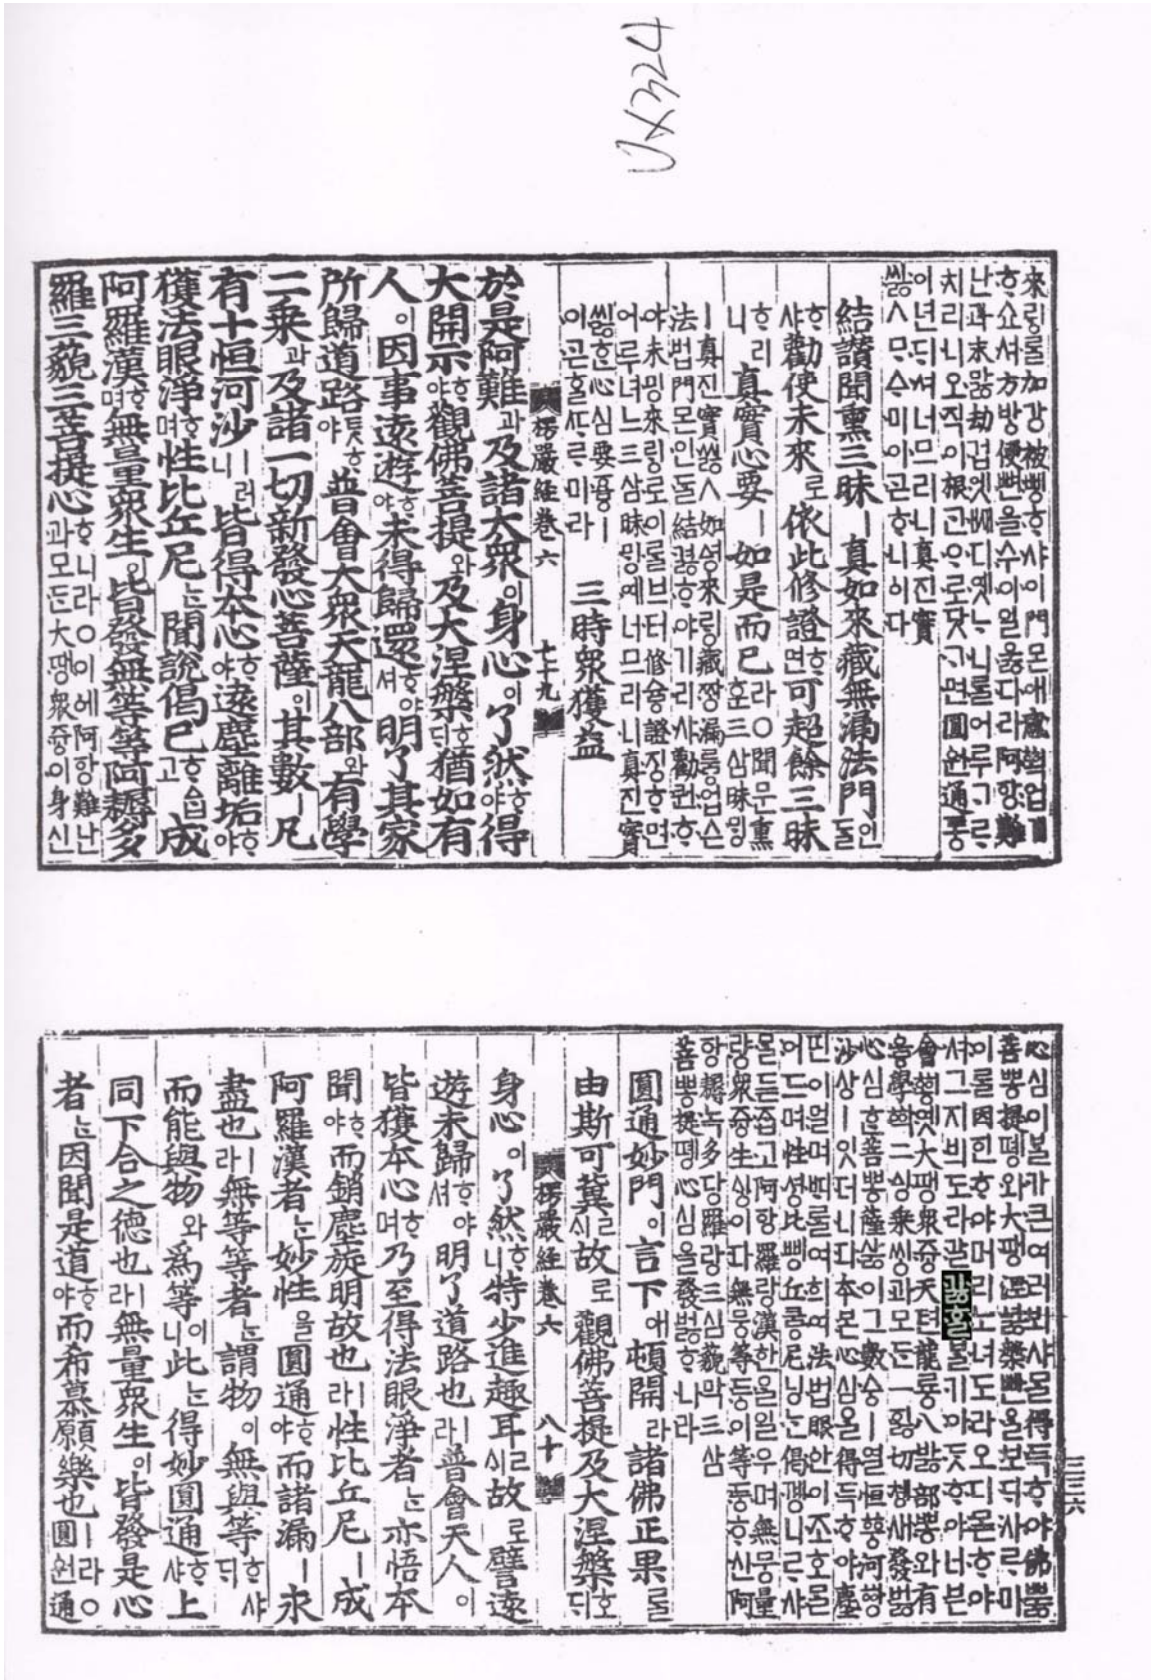 난과末맗劫겁엣
치리니오직이根ᄀᆞᆫᄋᆞ로닷ᄀᆞ면圓원通통
어년ᄃᆡ셔너므리니眞진實
씷ㅅᄆᆞᅀᆞ미아곤ᄒᆞ니이다
結讚聞熏三昧ㅣ眞如來藏無漏法門인ᄃᆞᆯ
ᄒᆞ샤勸使未來로 依此修證ᄒᆞ면可超餘三昧
ᄒᆞ리니 眞實心要ㅣ 如是而已라○聞문熏훈三삼昧밍
ㅣ眞진實씷ㅅ如영來링藏짱漏룽업슨
法법門몬인ᄃᆞᆯ結겷ᄒᆞ야기리샤勸퀀ᄒᆞ
야未밍來링로이ᄅᆞᆯ브터修슝證징ᄒᆞ면
어루녀느三삼昧밍예너므리니眞진實
씷ᄒᆞᆫ心심要ㅣ
이곧ᄒᆞᆯᄯᆞᄅᆞ미라 三時衆獲益
楞嚴經卷六 七十九
於是阿難과及諸大衆이身心이了然ᄒᆞ야得
大開示ᄒᆞ야觀佛菩提와及大涅槃ᄒᆞᄃᆡ猶如有
人。因事遠遊ᄒᆞ야未得歸還ᄒᆞ야셔明了其家
所歸道路ᄐᆞᆺᄒᆞ야普會大衆天龍八部와有學
二乘과及諸一切新發心菩薩이其數ㅣ凡
有十恒河沙ㅣ러니皆得本心ᄒᆞ야遠塵離垢ᄒᆞ야
獲法眼淨ᄒᆞ며性比丘尼ᄂᆞᆫ聞說偈已ᄒᆞᅀᆞᆸ고成
阿羅漢ᄒᆞ며無量衆生이皆發無等等阿耨多
羅三藐三菩提心ᄒᆞ니라○이에阿항難난과모ᄃᆞᆫ大땡衆즁이身신
三三六
心심이ᄇᆞᆯ가큰여러뵈샤ᄆᆞᆯ得득ᄒᆞ야佛뿛
菩뽕提똉와大땡涅녏槃빤ᄋᆞᆯ보ᄃᆡ사ᄅᆞ미
이ᄅᆞᆯ因ᄒᆞᆫᄒᆞ야머리노녀도라오디몯ᄒᆞ야
셔그지븨도라갈 ᄇᆞᆯ기아ᄃᆞᆺᄒᆞ야너븐
會ᅘᅬᆼ옛大땡衆즁天텬龍룡八밣部뽕와有
學ᅘᅡᆨ二ᅀᅵᆼ乘씽과모ᄃᆞᆫ一ᅙᅵᇙ切촁새發벓
心심ᄒᆞᆫ菩뽕薩삻이그數숭ㅣ열恒ᅘᅳᆼ河ᅘᅡᆼ
沙상ㅣ잇더니다本본心심ᄋᆞᆯ得득ᄒᆞ야塵
띤이멀며ᄠᆡᄅᆞᆯ여희여法법眼안이조호ᄆᆞᆯ
어드며性셩比삥丘쿻尼닝ᄂᆞᆫ偈니ᄅᆞ샤
ᄆᆞᆯ듣ᄌᆞᆸ고阿항羅랑漢한ᄋᆞᆯ일우며無뭉量
량衆즁生ᄉᆡᆼ이다無뭉等등이等등ᄒᆞ신阿
항耨녹多당羅랑三삼藐막三삼
菩뽕提똉心심을發벓ᄒᆞ니라
圓通妙門이言下애頓開라諸佛正果ᄅᆞᆯ
由斯可冀ㄹᄉᆡ故로 觀佛菩提及大涅槃호ᄃᆡ
楞嚴經卷六 八十
身心。이了然ᄒᆞ니特少進趣耳ㄹᄉᆡ故로譬遠
遊未歸ᄒᆞ야셔明了道路也ㅣ라普會天人。이
皆獲本心ᄒᆞ며乃至得法眼淨者ᄂᆞᆫ亦悟本
聞ᄒᆞ야而銷塵旋明故也ㅣ라性比丘尼ㅣ成
阿羅漢者ᄂᆞᆫ妙性을圓通ᄒᆞ야而諸漏ㅣ永
盡也ㅣ라無等等者ᄂᆞᆫ謂物이無與等ᄒᆞᄃᆡ샤
而能與物와爲等이니此ᄂᆞᆫ得妙圓通ᄒᆞ샤上
同下合之德也ㅣ라無量衆生이皆發是心
者ᄂᆞᆫ因聞是道ᄒᆞ야而希慕願樂也ㅣ라○圓원通